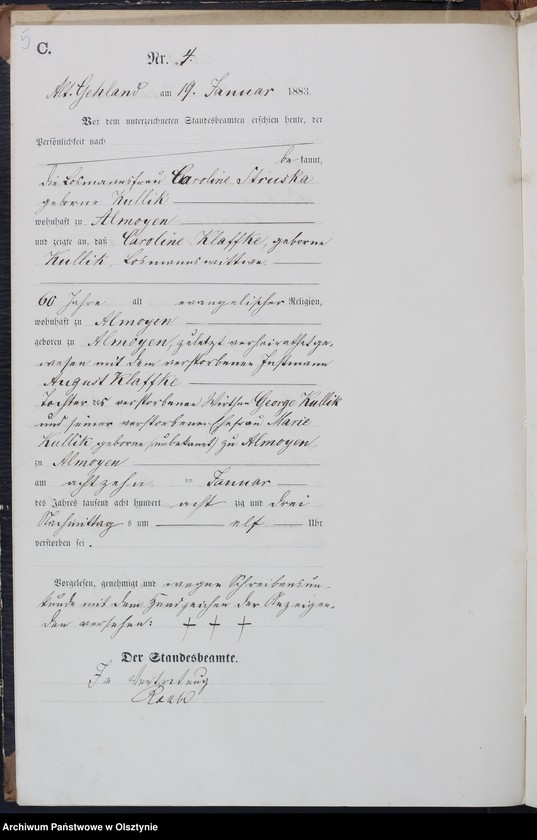 5
C.
Nr. 4.
Alt-Gehland am 19. Januar 1883.
Vor dem unterzeichneten Standesbeamten erschien heute, der
Persönlichkeit nach
be kannt,
die Losmannsfrau Caroline Struska
geborne Kullik
wohnhaft zu Almoyen
und zeigte an, daß Caroline Klaffke, geborne
Kullik, Losmannswittwe
60 Jahre alt evangelischer Religion,
wohnhaft zu Almoyen
geboren zu Almoyen, zuletzt verheirathet ge-
wesen mit dem verstorbenen Instmann
August Klaffke
Tochter des verstorbenen Wirthen George Kullik
und seiner verstorbenen Ehefrau Marie
Kullik geborne (unbekannt) zu Almoyen
zu Almoyen
am achtzehn ten Januar
des Jahres tausend acht hundert acht zig und drei
Nachmittag s um elf Uhr
verstorben sei.
Vorgelesen, genehmigt und wegen Schreibensun-
kunde mit dem Handzeichen der Anzeigen-
den versehen: + + +
Der Standesbeamte.
In Vertretung
Archiwum Państwowe w Olsztynie